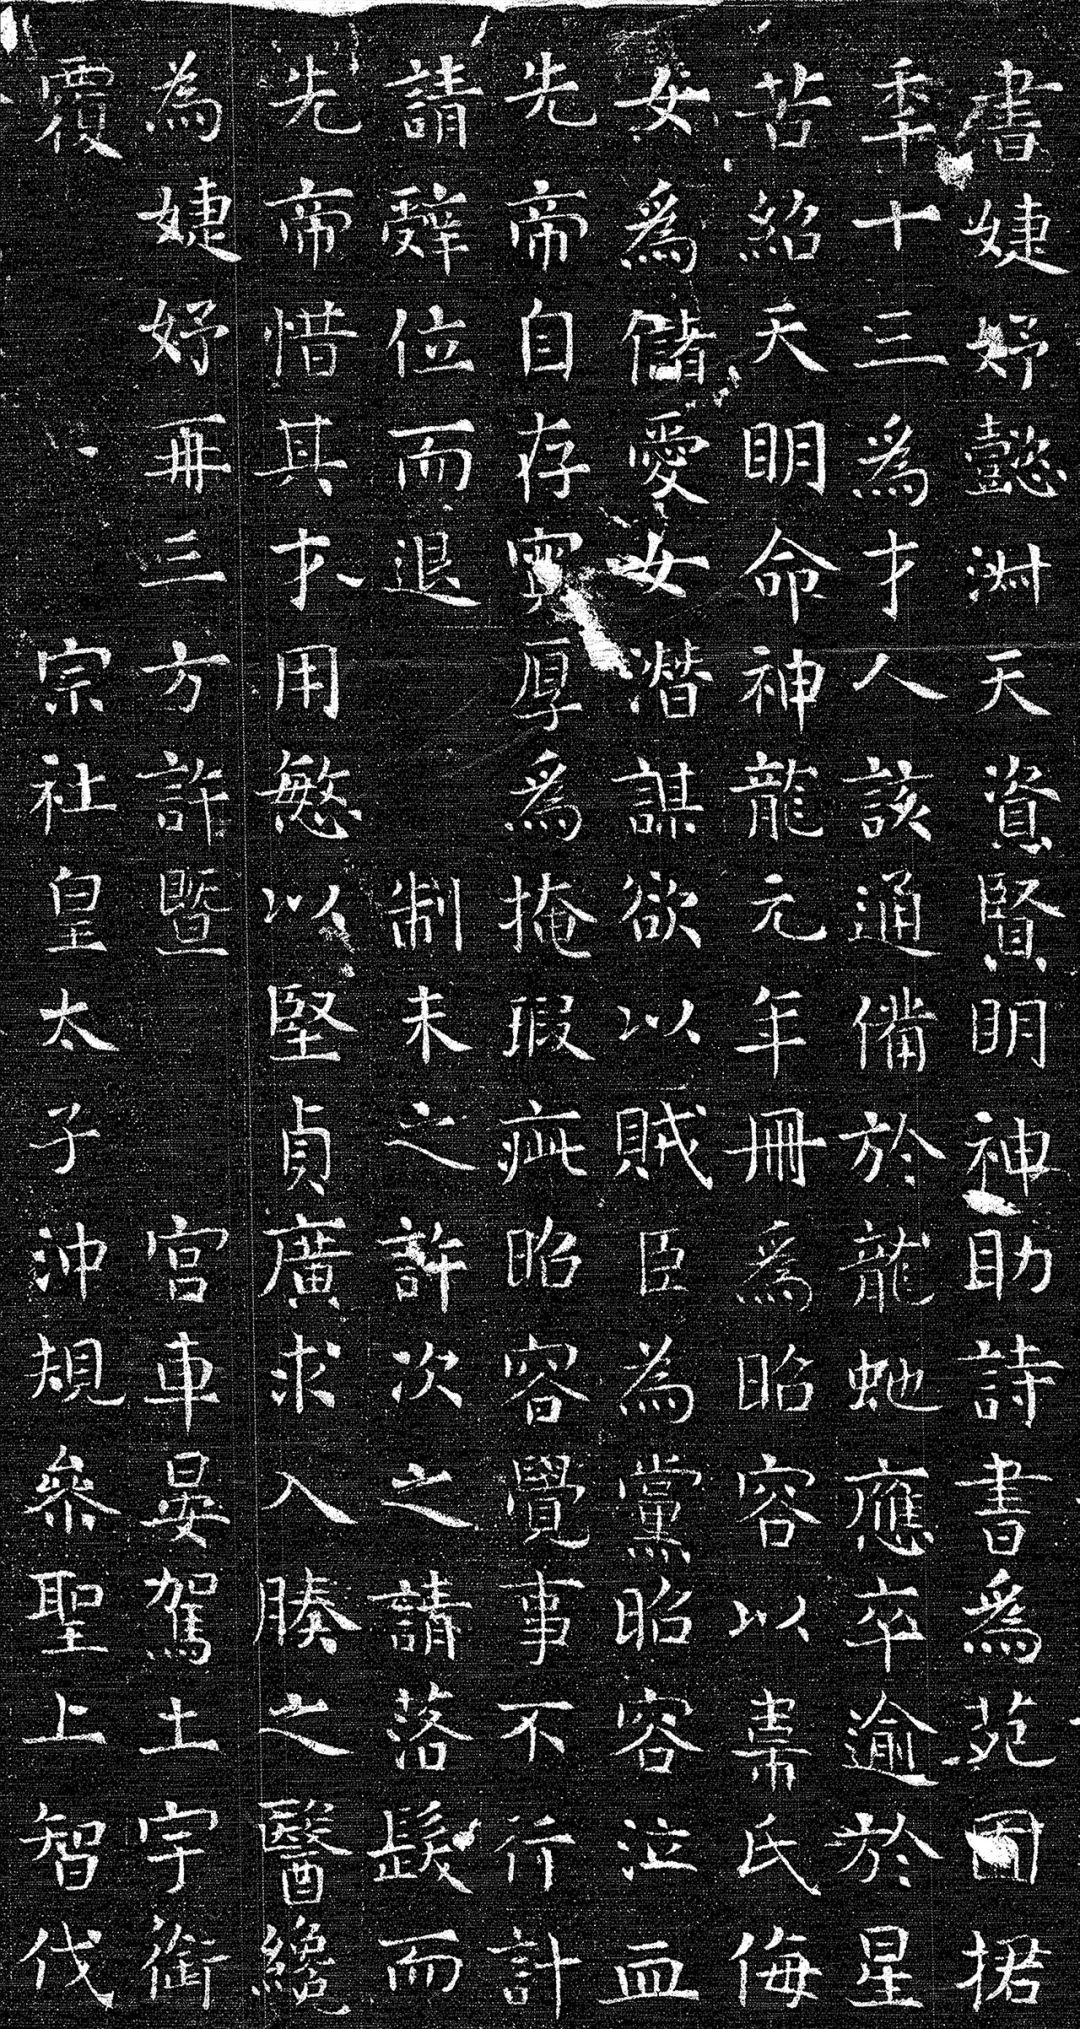 書婕妤懿淑天資賢明神助詩書為苑囿捃
年十三為才人該通備於龍虵應卒逾於星
苦紹天明命神龍元年冊為昭容以韋氏侮
女為儲愛女潛謀欲以賊臣為黨昭容泣血
先帝自存寬厚為掩瑕疵昭容覺事不行計
請辭位而退制未之許次之請落髮而
先帝惜其才用慜以堅貞廣求入腠之醫纔
為婕妤再三方許暨宮車晏駕土宇銜
覆宗社皇太子沖規參聖上智伐